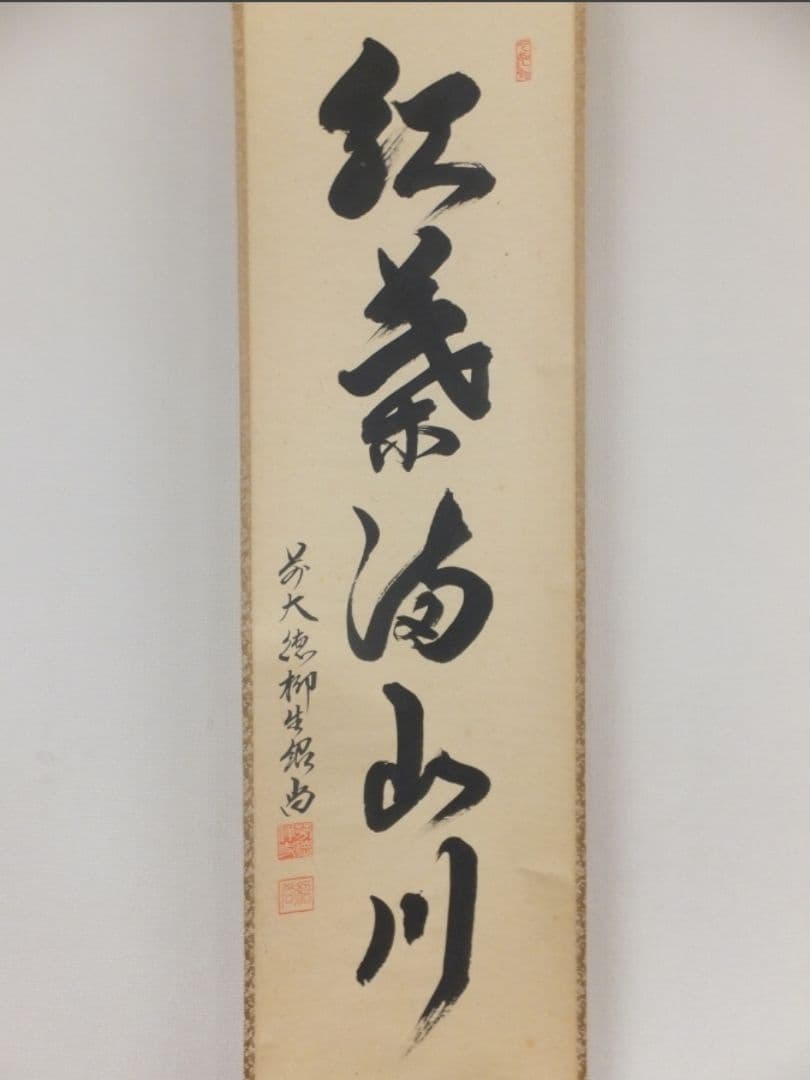 紅葉満山川
前大徳柳生紹尚